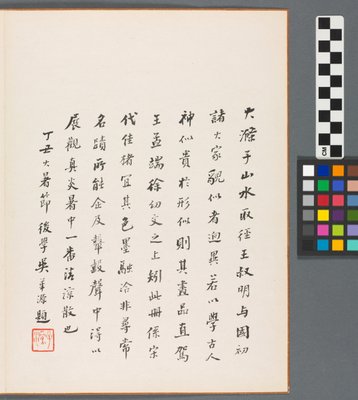 大滌子山水取徑王叔明与國初
諸大家貌似者迥異若以學古人
神似貴於形似則其畫品直駕
王孟端徐幼文之上矧此冊係宋
代佳楮宜其色墨融洽非尋常
名蹟所能企及鼙鼓聲中得以
展觀真炎暑中一番清涼散也
丁丑大暑節後學吳華源題